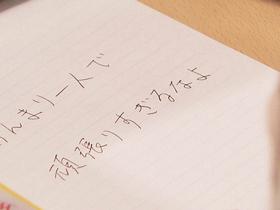 んまり一人で
頑張りすぎるなよ